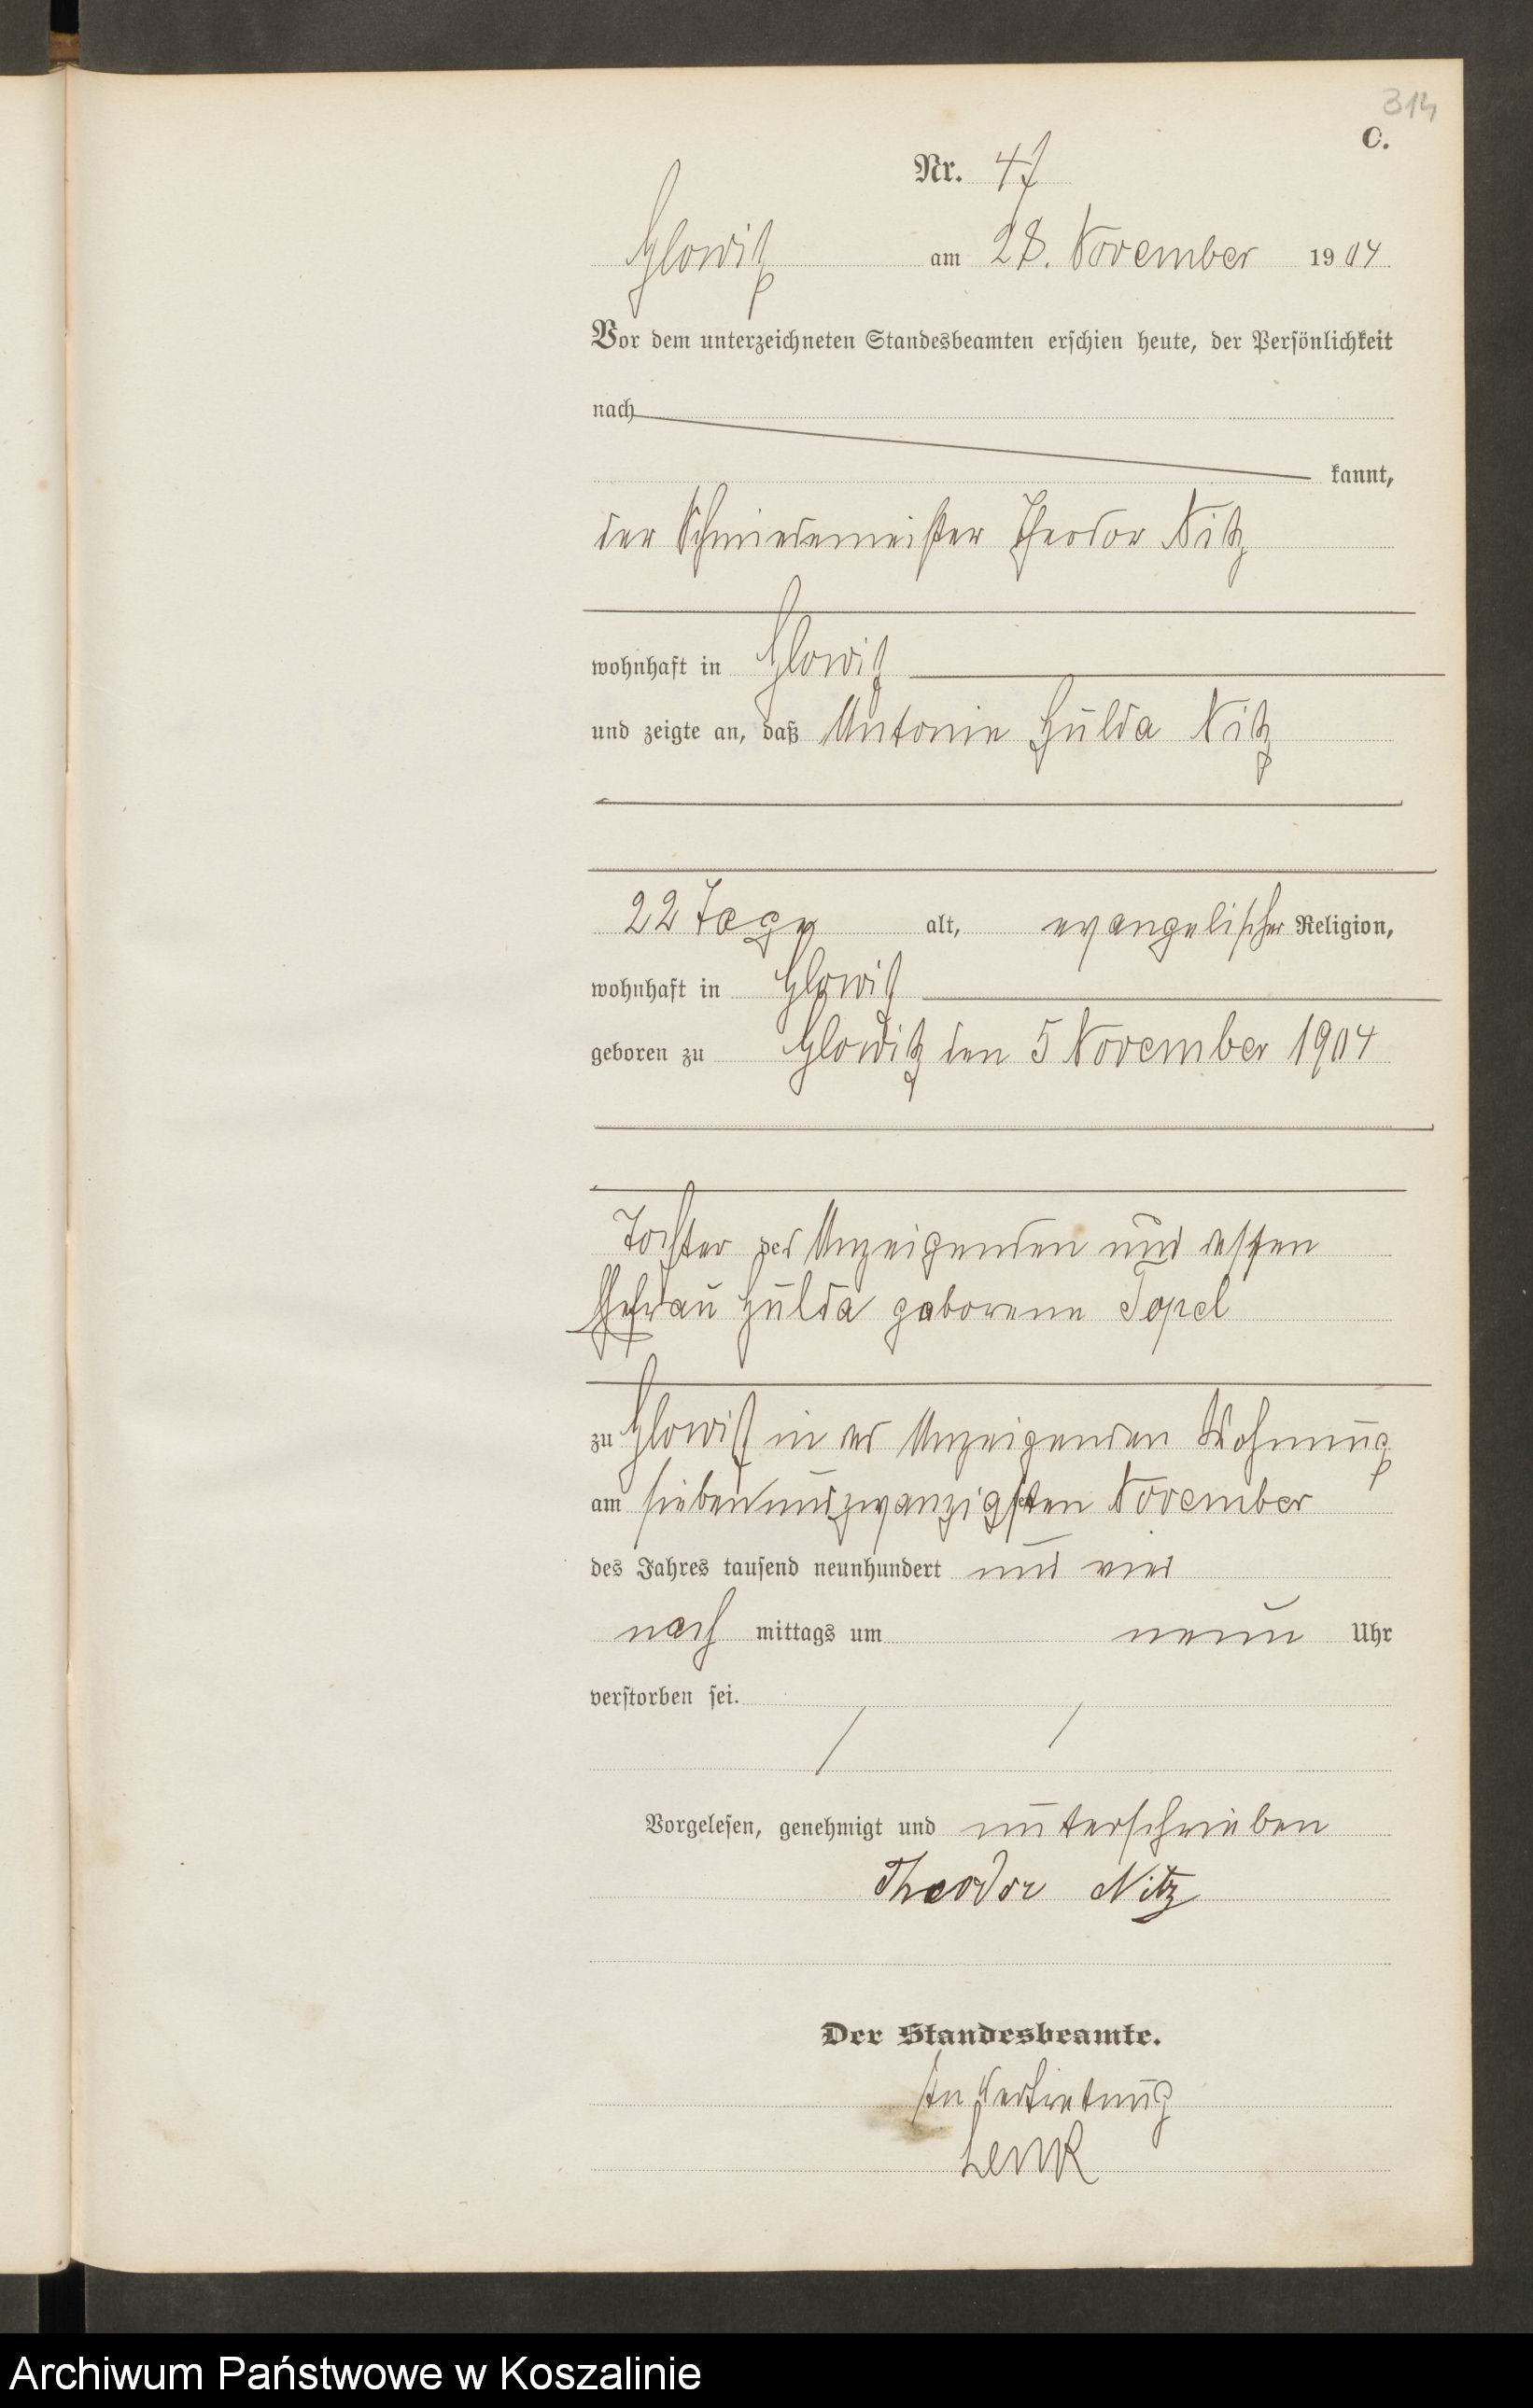 314
C.
Nr. 47
Glowitz am 28. November 1904
Vor dem unterzeichneten Standesbeamten erschien heute, der Persönlichkeit
nach
kannt,
der Schmiedemeister Theodor Nitz
wohnhaft in Glowitz
und zeigte an, daß Antonie Hulda Nitz
22 Tage alt, evangelischer Religion,
wohnhaft in Glowitz
geboren zu Glowitz den 5 November 1904
Tochter des Anzeigenden und dessen
Ehefrau Hulda geborene Topel
zu Glowitz in des Anzeigenden Wohnung
am siebenundzwanzigsten November
des Jahres tausend neunhundert und vier
nach mittags um neun Uhr
verstorben sei.
Vorgelesen, genehmigt und unterschrieben
Theodor Nitz
Der Standesbeamte.
In Vertretung
Lenk
Archiwum Państwowe w Koszalinie